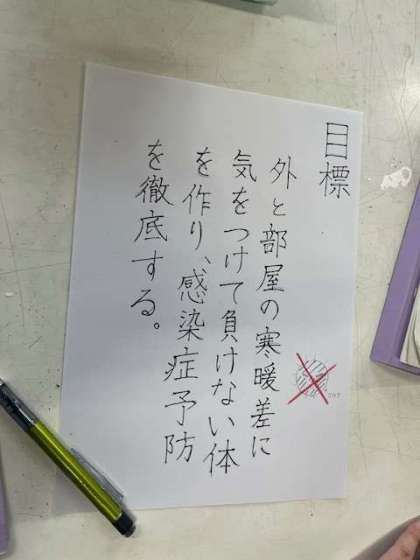 目標
外と部屋の寒暖差に
気をつけて負けない体
を作り、感染症予防
を徹底する。